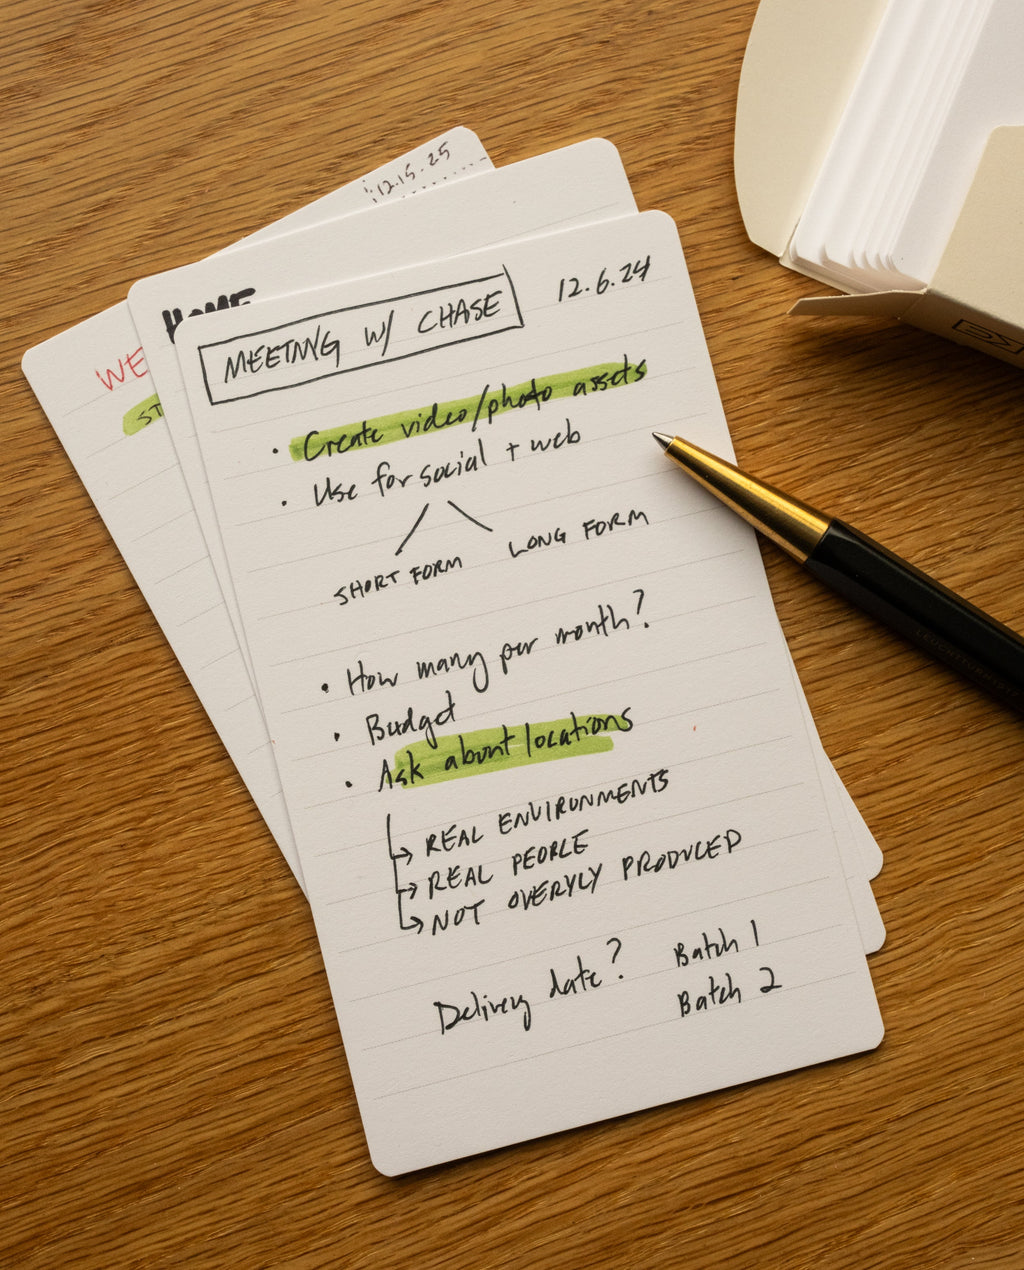 12.15.25
HOME
WE
ST
MEETING W/ CHASE
12.6.24
• Create video/photo assets
• Use for social + web
SHORT FORM
LONG FORM
• How many per month?
• Budget
• Ask about locations
→ REAL ENVIRONMENTS
→ REAL PEOPLE
→ NOT OVERYLY PRODUCED
Delivery date?
Batch 1
Batch 2